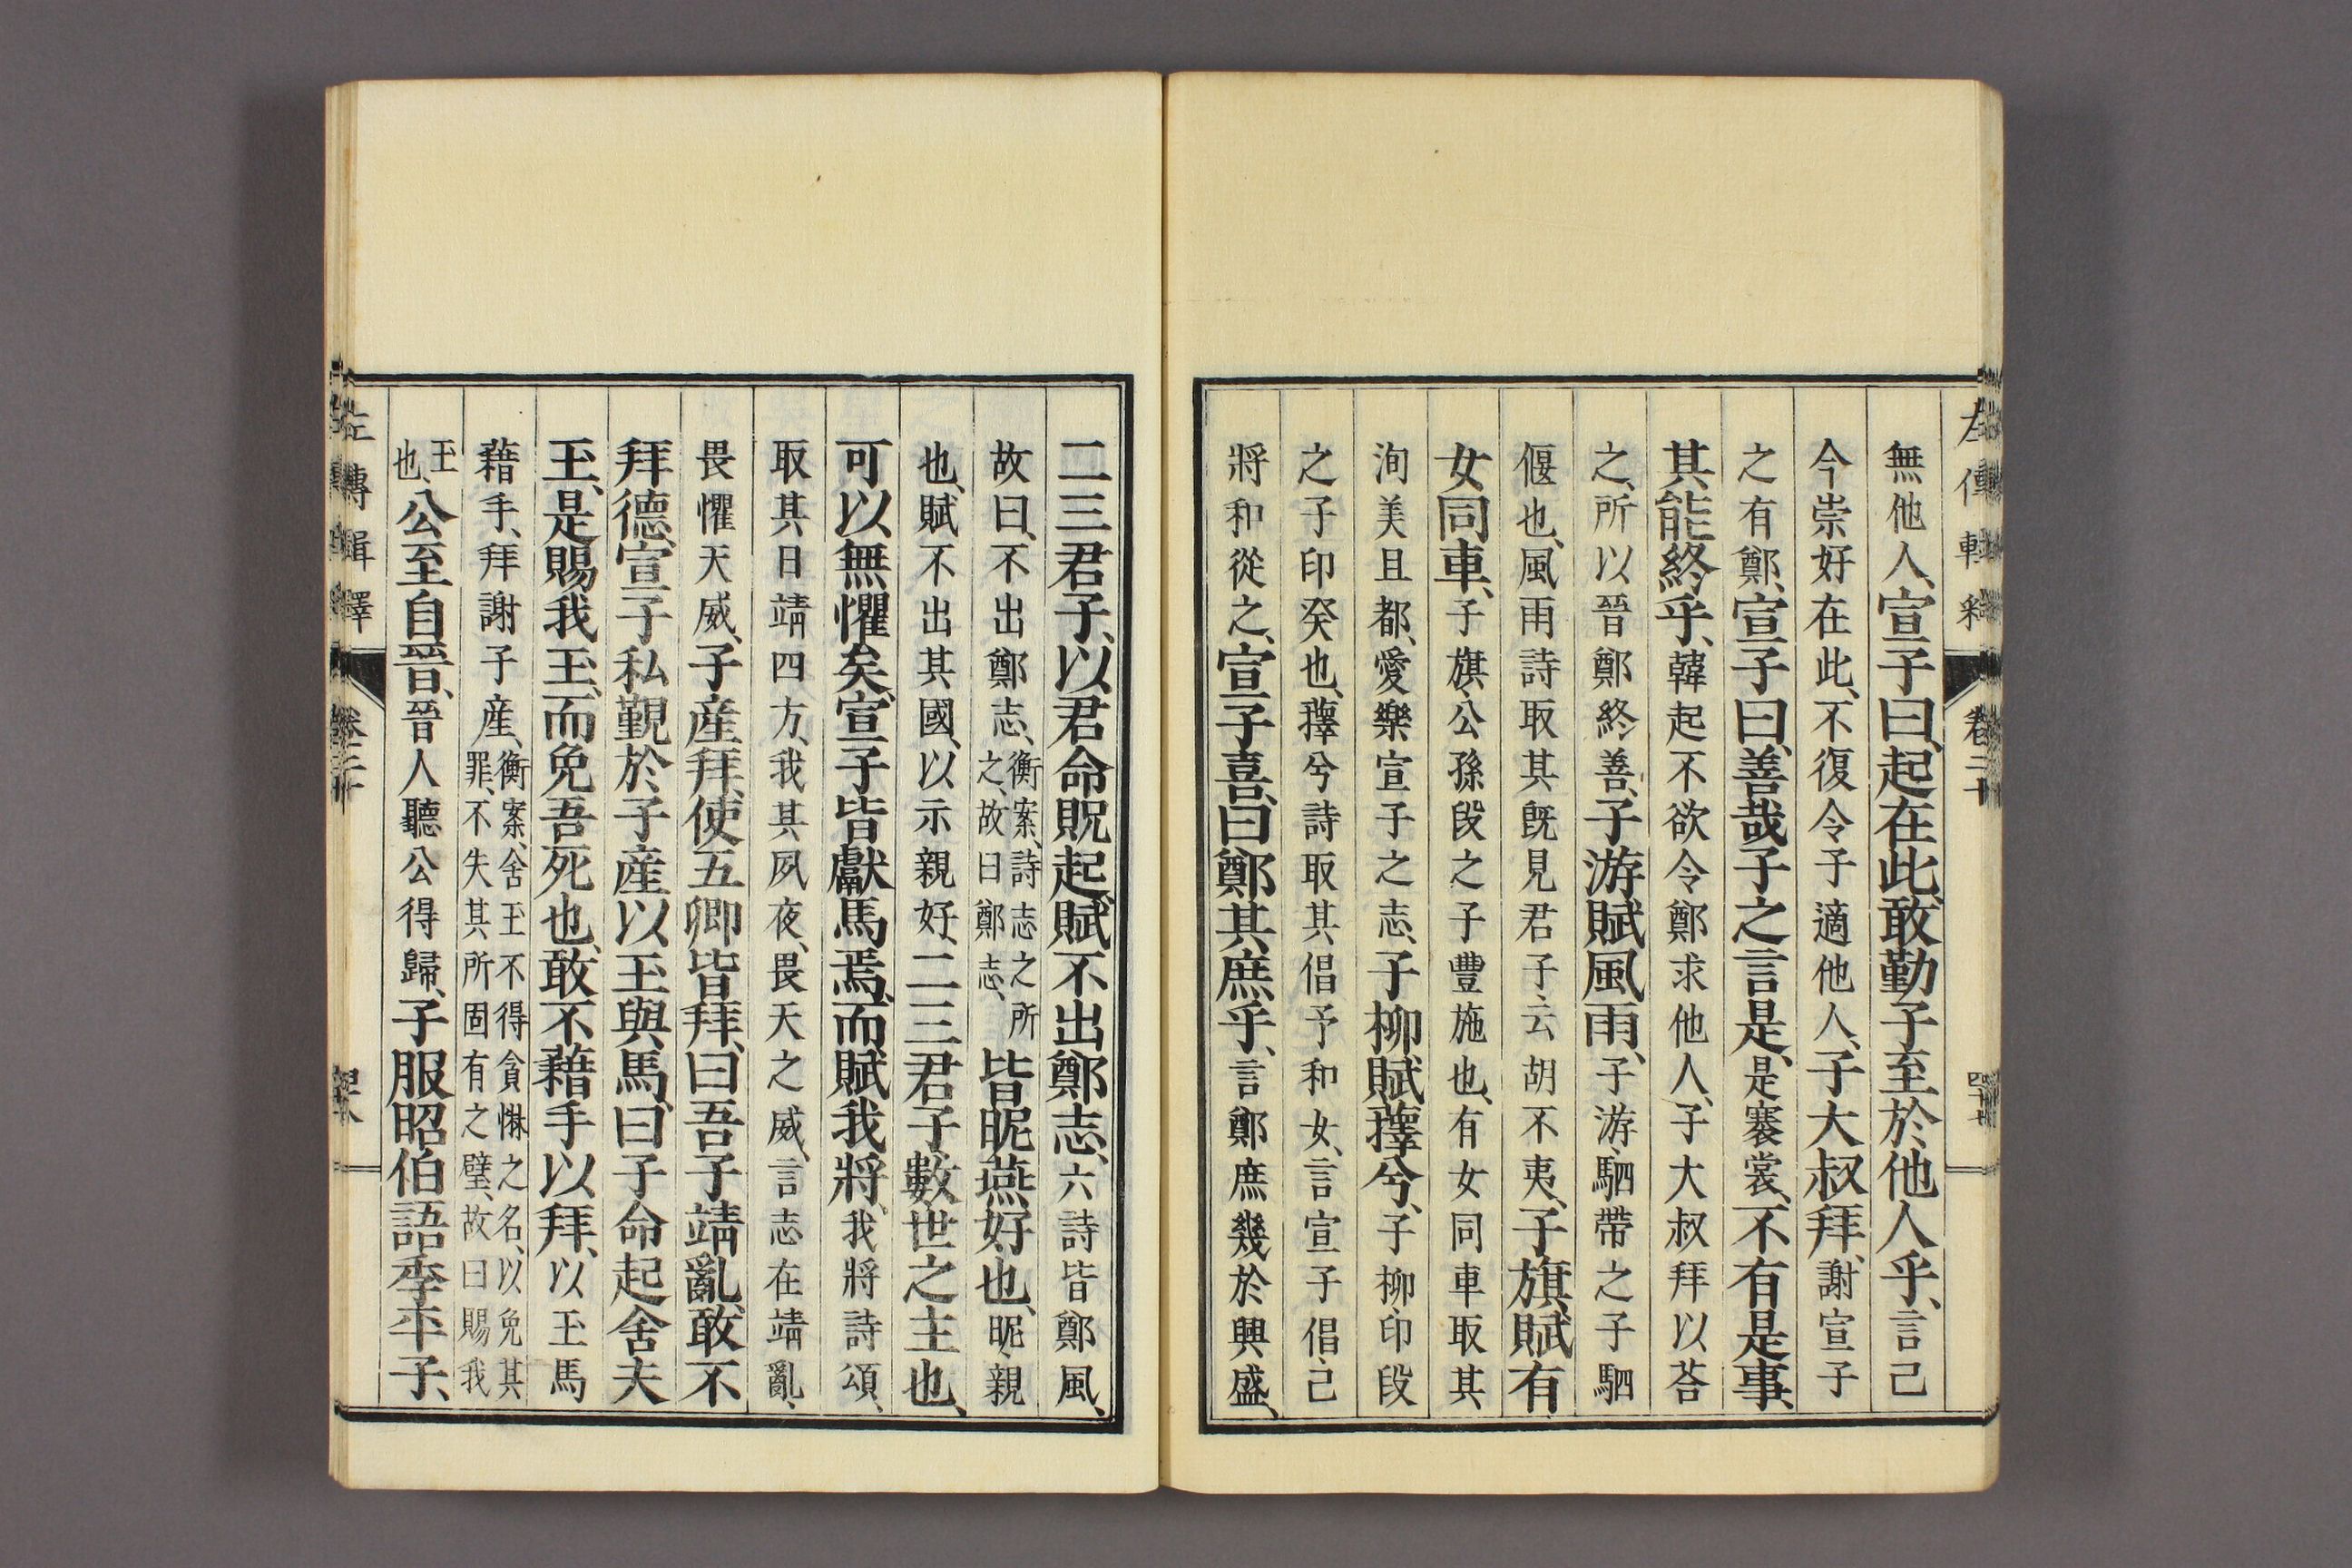 無他人、宣子曰、起在此、敢勤子至於他人乎、言己
今崇好在此、不復令子適他人、子大叔拜、謝宣子
之有鄭、宣子曰、善哉子之言是、是褰裳、不有是事、
其能終乎、韓起不欲令鄭求他人、子大叔拜以荅
之、所以晉鄭終善、子游賦風雨、子游、駟帶之子駟
偃也、風雨詩取其既見君子云胡不夷、子旗賦有
女同車、子旗、公孫段之子豐施也、有女同車取其
洵美且都、愛樂宣子之志、子柳賦蘀兮、子柳、印段
之子印癸也、蘀兮詩取其倡予和女、言宣子倡、己
將和從之、宣子喜、曰鄭其庶乎、言鄭庶幾於興盛、
二三君子、以君命貺起、賦不出鄭志、六詩皆鄭風、
故曰、不出鄭志、衡案、詩志之所
之、故曰鄭志、
皆昵燕好也、昵、親
也、賦不出其國、以示親好、二三君子、數世之主也、
可以無懼矣、宣子皆獻馬焉、而賦我將、我將詩頌、
取其日靖四方、我其夙夜、畏天之威、言志在靖亂、
畏懼天威、子產拜、使五卿皆拜、曰吾子靖亂、敢不
拜德、宣子私覲於子產以玉與馬、曰子命起舍夫
玉、是賜我玉、而免吾死也、敢不藉手以拜、以玉馬
藉手、拜謝子產、衡案、舍玉不得貪惏之名、以免其
罪、不失其所固有之璧、故曰賜我
玉
也、
公至自晉、晉人聽公得歸、子服昭伯語季平子、
左傳輯釋
卷二十